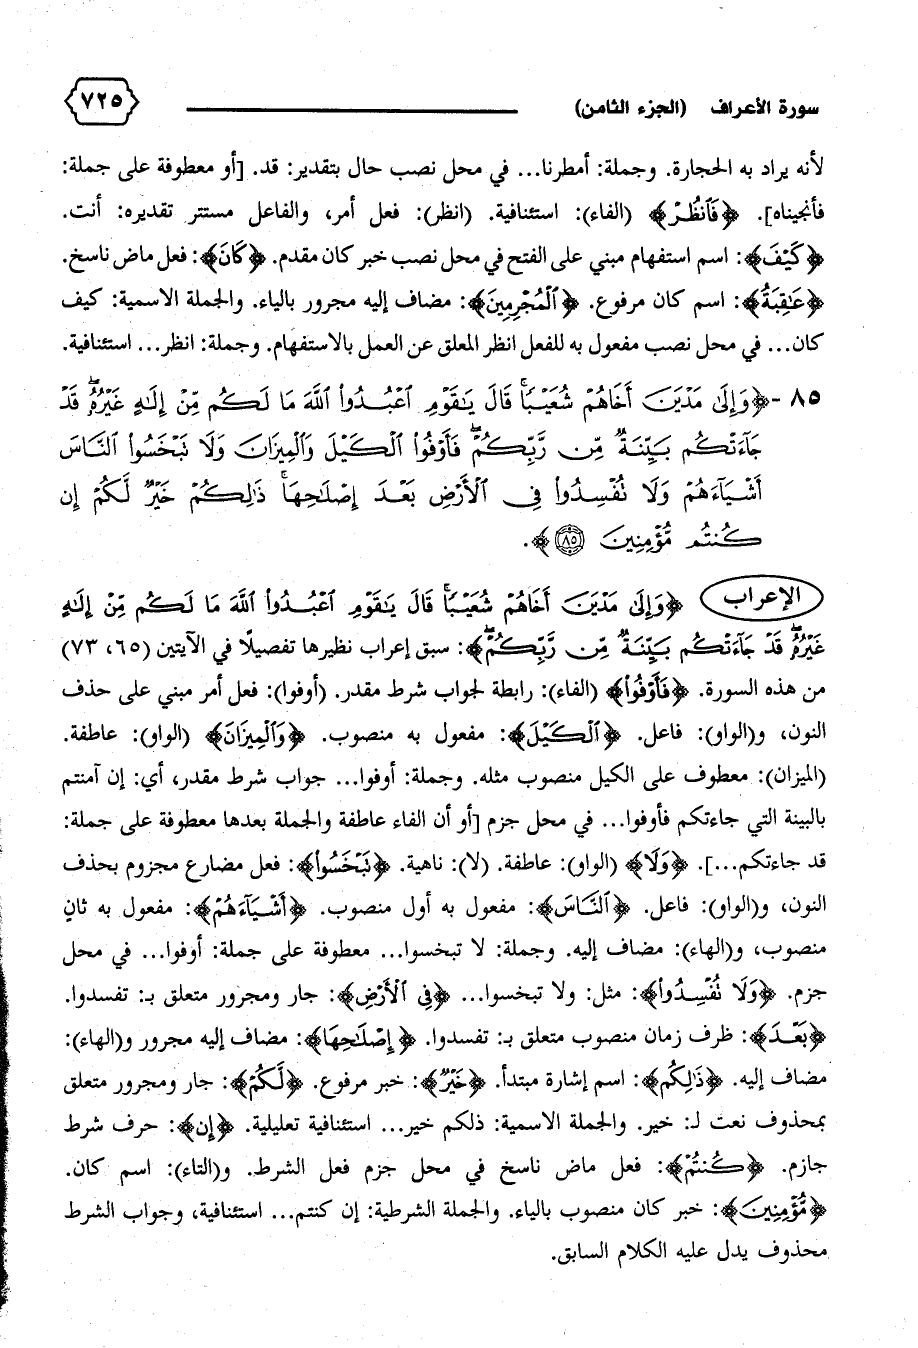 سورة الأعراف (الجزء الثامن) ٧٢٥
لأنه يراد به الحجارة. وجملة: أمطرنا... في محل نصب حال بتقدير: قد. [أو معطوفة على جملة:
فأنجيناه]. ﴿فَٱنظُرْ﴾ (الفاء): استئنافية. (انظر): فعل أمر، والفاعل مستتر تقديره: أنت.
﴿كَيْفَ﴾: اسم استفهام مبني على الفتح في محل نصب خبر كان مقدم. ﴿كَانَ﴾: فعل ماض ناسخ.
﴿عَٰقِبَةُ﴾: اسم كان مرفوع. ﴿ٱلْمُجْرِمِينَ﴾: مضاف إليه مجرور بالياء. والجملة الاسمية: كيف
كان... في محل نصب مفعول به للفعل انظر المعلق عن العمل بالاستفهام. وجملة: انظر... استئنافية.
٨٥ -﴿وَإِلَىٰ مَدْيَنَ أَخَاهُمْ شُعَيْبًا ۗ قَالَ يَٰقَوْمِ ٱعْبُدُوا۟ ٱللَّهَ مَا لَكُم مِّنْ إِلَٰهٍ غَيْرُهُۥ ۖ قَدْ
جَآءَتْكُم بَيِّنَةٌ مِّن رَّبِّكُمْ ۖ فَأَوْفُوا۟ ٱلْكَيْلَ وَٱلْمِيزَانَ وَلَا تَبْخَسُوا۟ ٱلنَّاسَ
أَشْيَآءَهُمْ وَلَا تُفْسِدُوا۟ فِى ٱلْأَرْضِ بَعْدَ إِصْلَٰحِهَا ۚ ذَٰلِكُمْ خَيْرٌ لَّكُمْ إِن
كُنتُم مُّؤْمِنِينَ ٨٥﴾.
الإعراب ﴿وَإِلَىٰ مَدْيَنَ أَخَاهُمْ شُعَيْبًا ۗ قَالَ يَٰقَوْمِ ٱعْبُدُوا۟ ٱللَّهَ مَا لَكُم مِّنْ إِلَٰهٍ
غَيْرُهُۥ ۖ قَدْ جَآءَتْكُم بَيِّنَةٌ مِّن رَّبِّكُمْ ۖ﴾: سبق إعراب نظيرها تفصيلًا في الآيتين (٦٥، ٧٣)
من هذه السورة. ﴿فَأَوْفُوا۟﴾ (الفاء): رابطة لجواب شرط مقدر. (أوفوا): فعل أمر مبني على حذف
النون، و(الواو): فاعل. ﴿ٱلْكَيْلَ﴾: مفعول به منصوب. ﴿وَٱلْمِيزَانَ﴾ (الواو): عاطفة.
(الميزان): معطوف على الكيل منصوب مثله. وجملة: أوفوا... جواب شرط مقدر، أي: إن آمنتم
بالبينة التي جاءتكم فأوفوا... في محل جزم [أو أن الفاء عاطفة والجملة بعدها معطوفة على جملة:
قد جاءتكم...]. ﴿وَلَا﴾ (الواو): عاطفة. (لا): ناهية. ﴿تَبْخَسُوا۟﴾: فعل مضارع مجزوم بحذف
النون، و(الواو): فاعل. ﴿ٱلنَّاسَ﴾: مفعول به أول منصوب. ﴿أَشْيَآءَهُمْ﴾: مفعول به ثانٍ
منصوب، و(الهاء): مضاف إليه. وجملة: لا تبخسوا... معطوفة على جملة: أوفوا... في محل
جزم. ﴿وَلَا تُفْسِدُوا۟﴾: مثل: ولا تبخسوا... ﴿فِى ٱلْأَرْضِ﴾: جار ومجرور متعلق بـ: تفسدوا.
﴿بَعْدَ﴾: ظرف زمان منصوب متعلق بـ: تفسدوا. ﴿إِصْلَٰحِهَا﴾: مضاف إليه مجرور و(الهاء):
مضاف إليه. ﴿ذَٰلِكُمْ﴾: اسم إشارة مبتدأ. ﴿خَيْرٌ﴾: خبر مرفوع. ﴿لَّكُمْ﴾: جار ومجرور متعلق
بمحذوف نعت لـ: خير. والجملة الاسمية: ذلكم خير... استئنافية تعليلية. ﴿إِن﴾: حرف شرط
جازم. ﴿كُنتُم﴾: فعل ماض ناسخ في محل جزم فعل الشرط. و(التاء): اسم كان.
﴿مُّؤْمِنِينَ﴾: خبر كان منصوب بالياء. والجملة الشرطية: إن كنتم... استئنافية، وجواب الشرط
محذوف يدل عليه الكلام السابق.